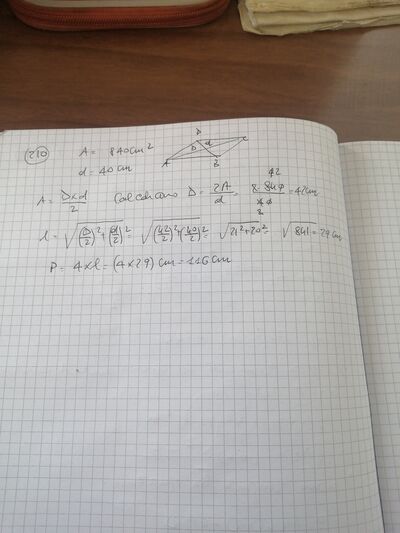 210 A = 840 cm²
d = 40 cm
D C D d A B
A = D×d/2 Calcoliamo D = 2A/d = 2·840/40 = 42 cm
l = √(D/2)²+(d/2)² = √(42/2)²+(40/2)² = √21²+20² = √841 = 29 cm
P = 4×l = (4×29) cm = 116 cm